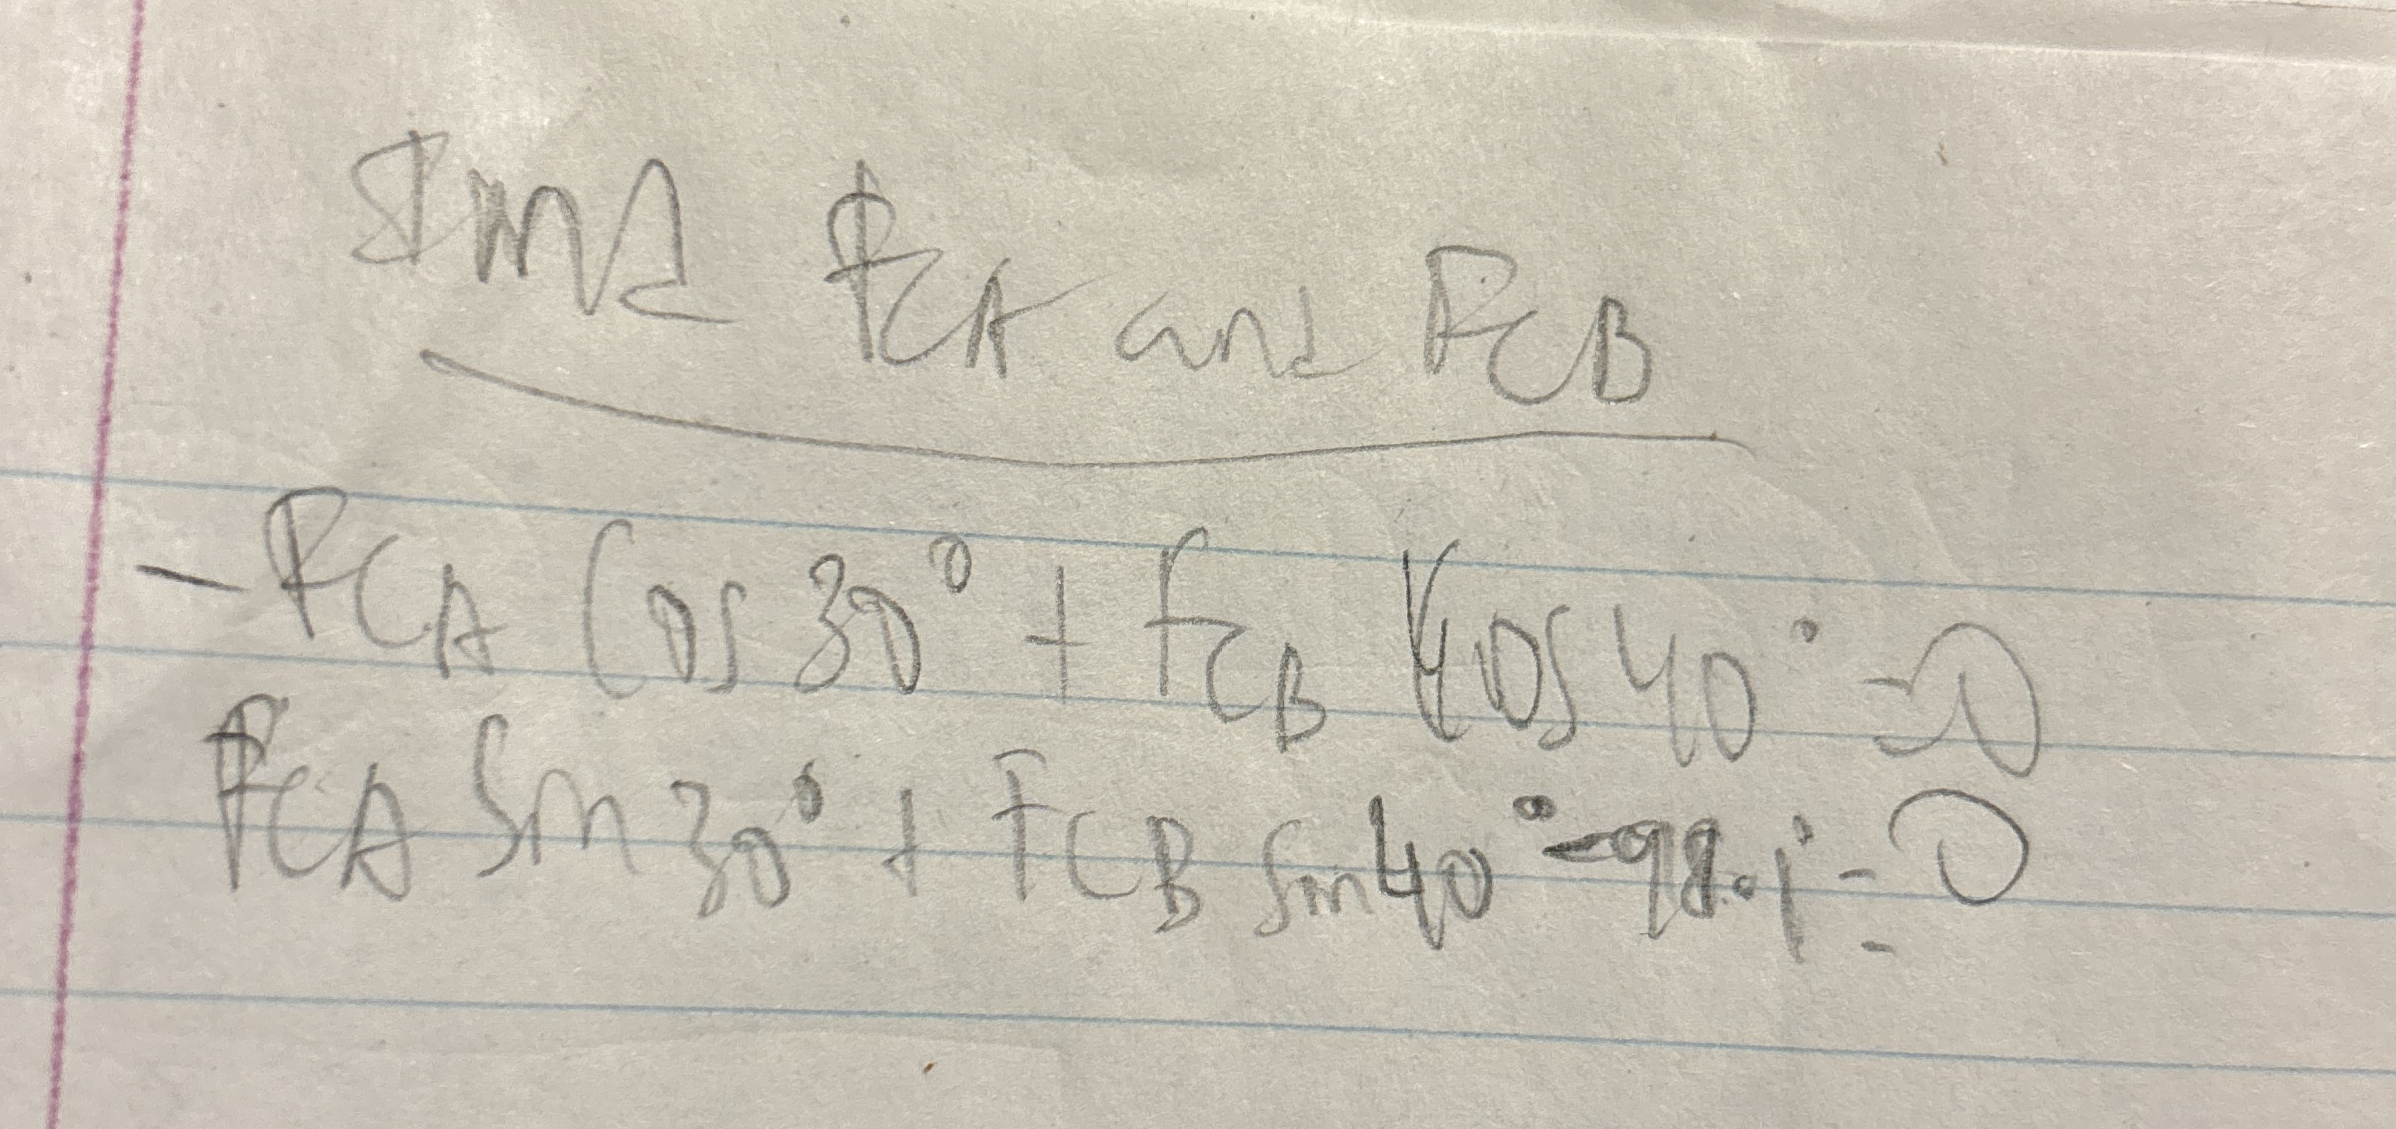 Find FCA and FCB
-FCA Cos 30° + FCB Cos 40° = 0
FCA Sin 30° + FCB Sin 40° - 98.1 = 0